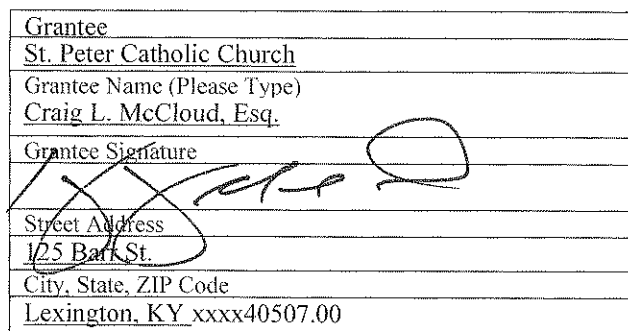 Grantee
St. Peter Catholic Church
Grantee Name (Please Type)
Craig L. McCloud, Esq.
Grantee Signature
Street Address
125 Barr St.
City, State, ZIP Code
Lexington, KY xxxx40507.00